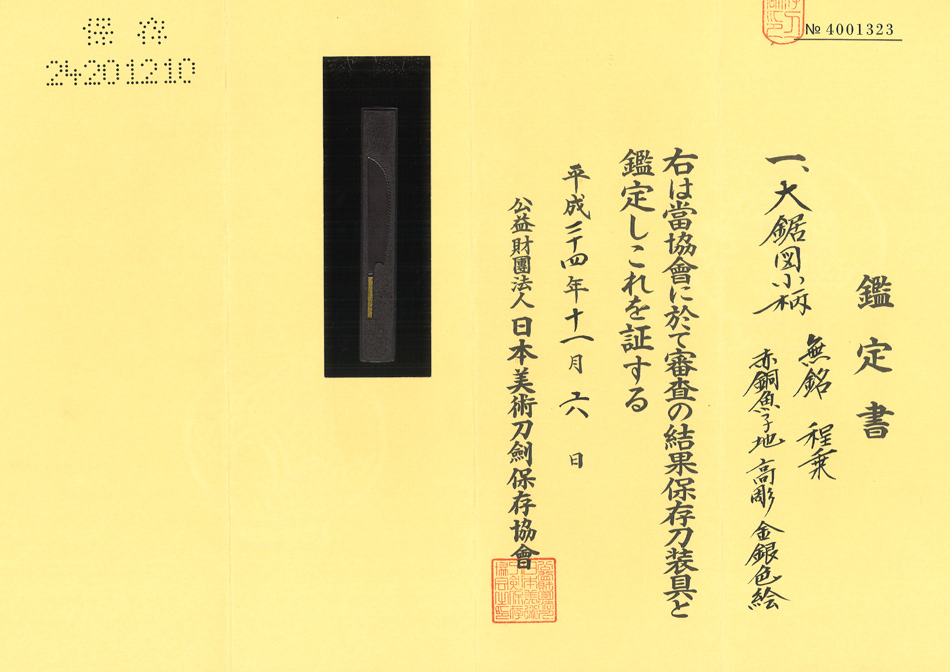 保存
24201210
№ 4001323
鑑定書
一、大鋸図小柄
無銘 程乗
赤銅魚子地 高彫 金銀色絵
右は當協會に於て審査の結果保存刀装具と
鑑定しこれを証する
平成二十四年十一月十六日
公益財團法人 日本美術刀劍保存協會